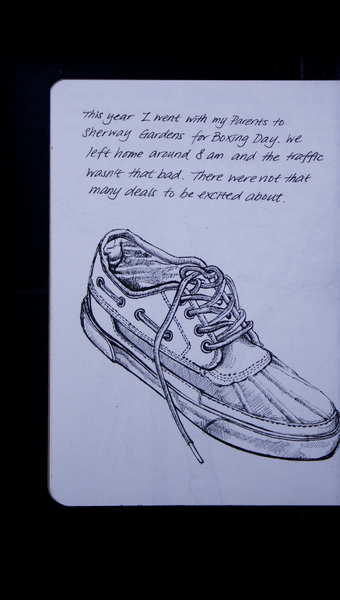 This year I went with my Parents to
Sherway Gardens for Boxing Day. We
left home around 8 am and the traffic
wasn't that bad. There were not that
many deals to be excited about.